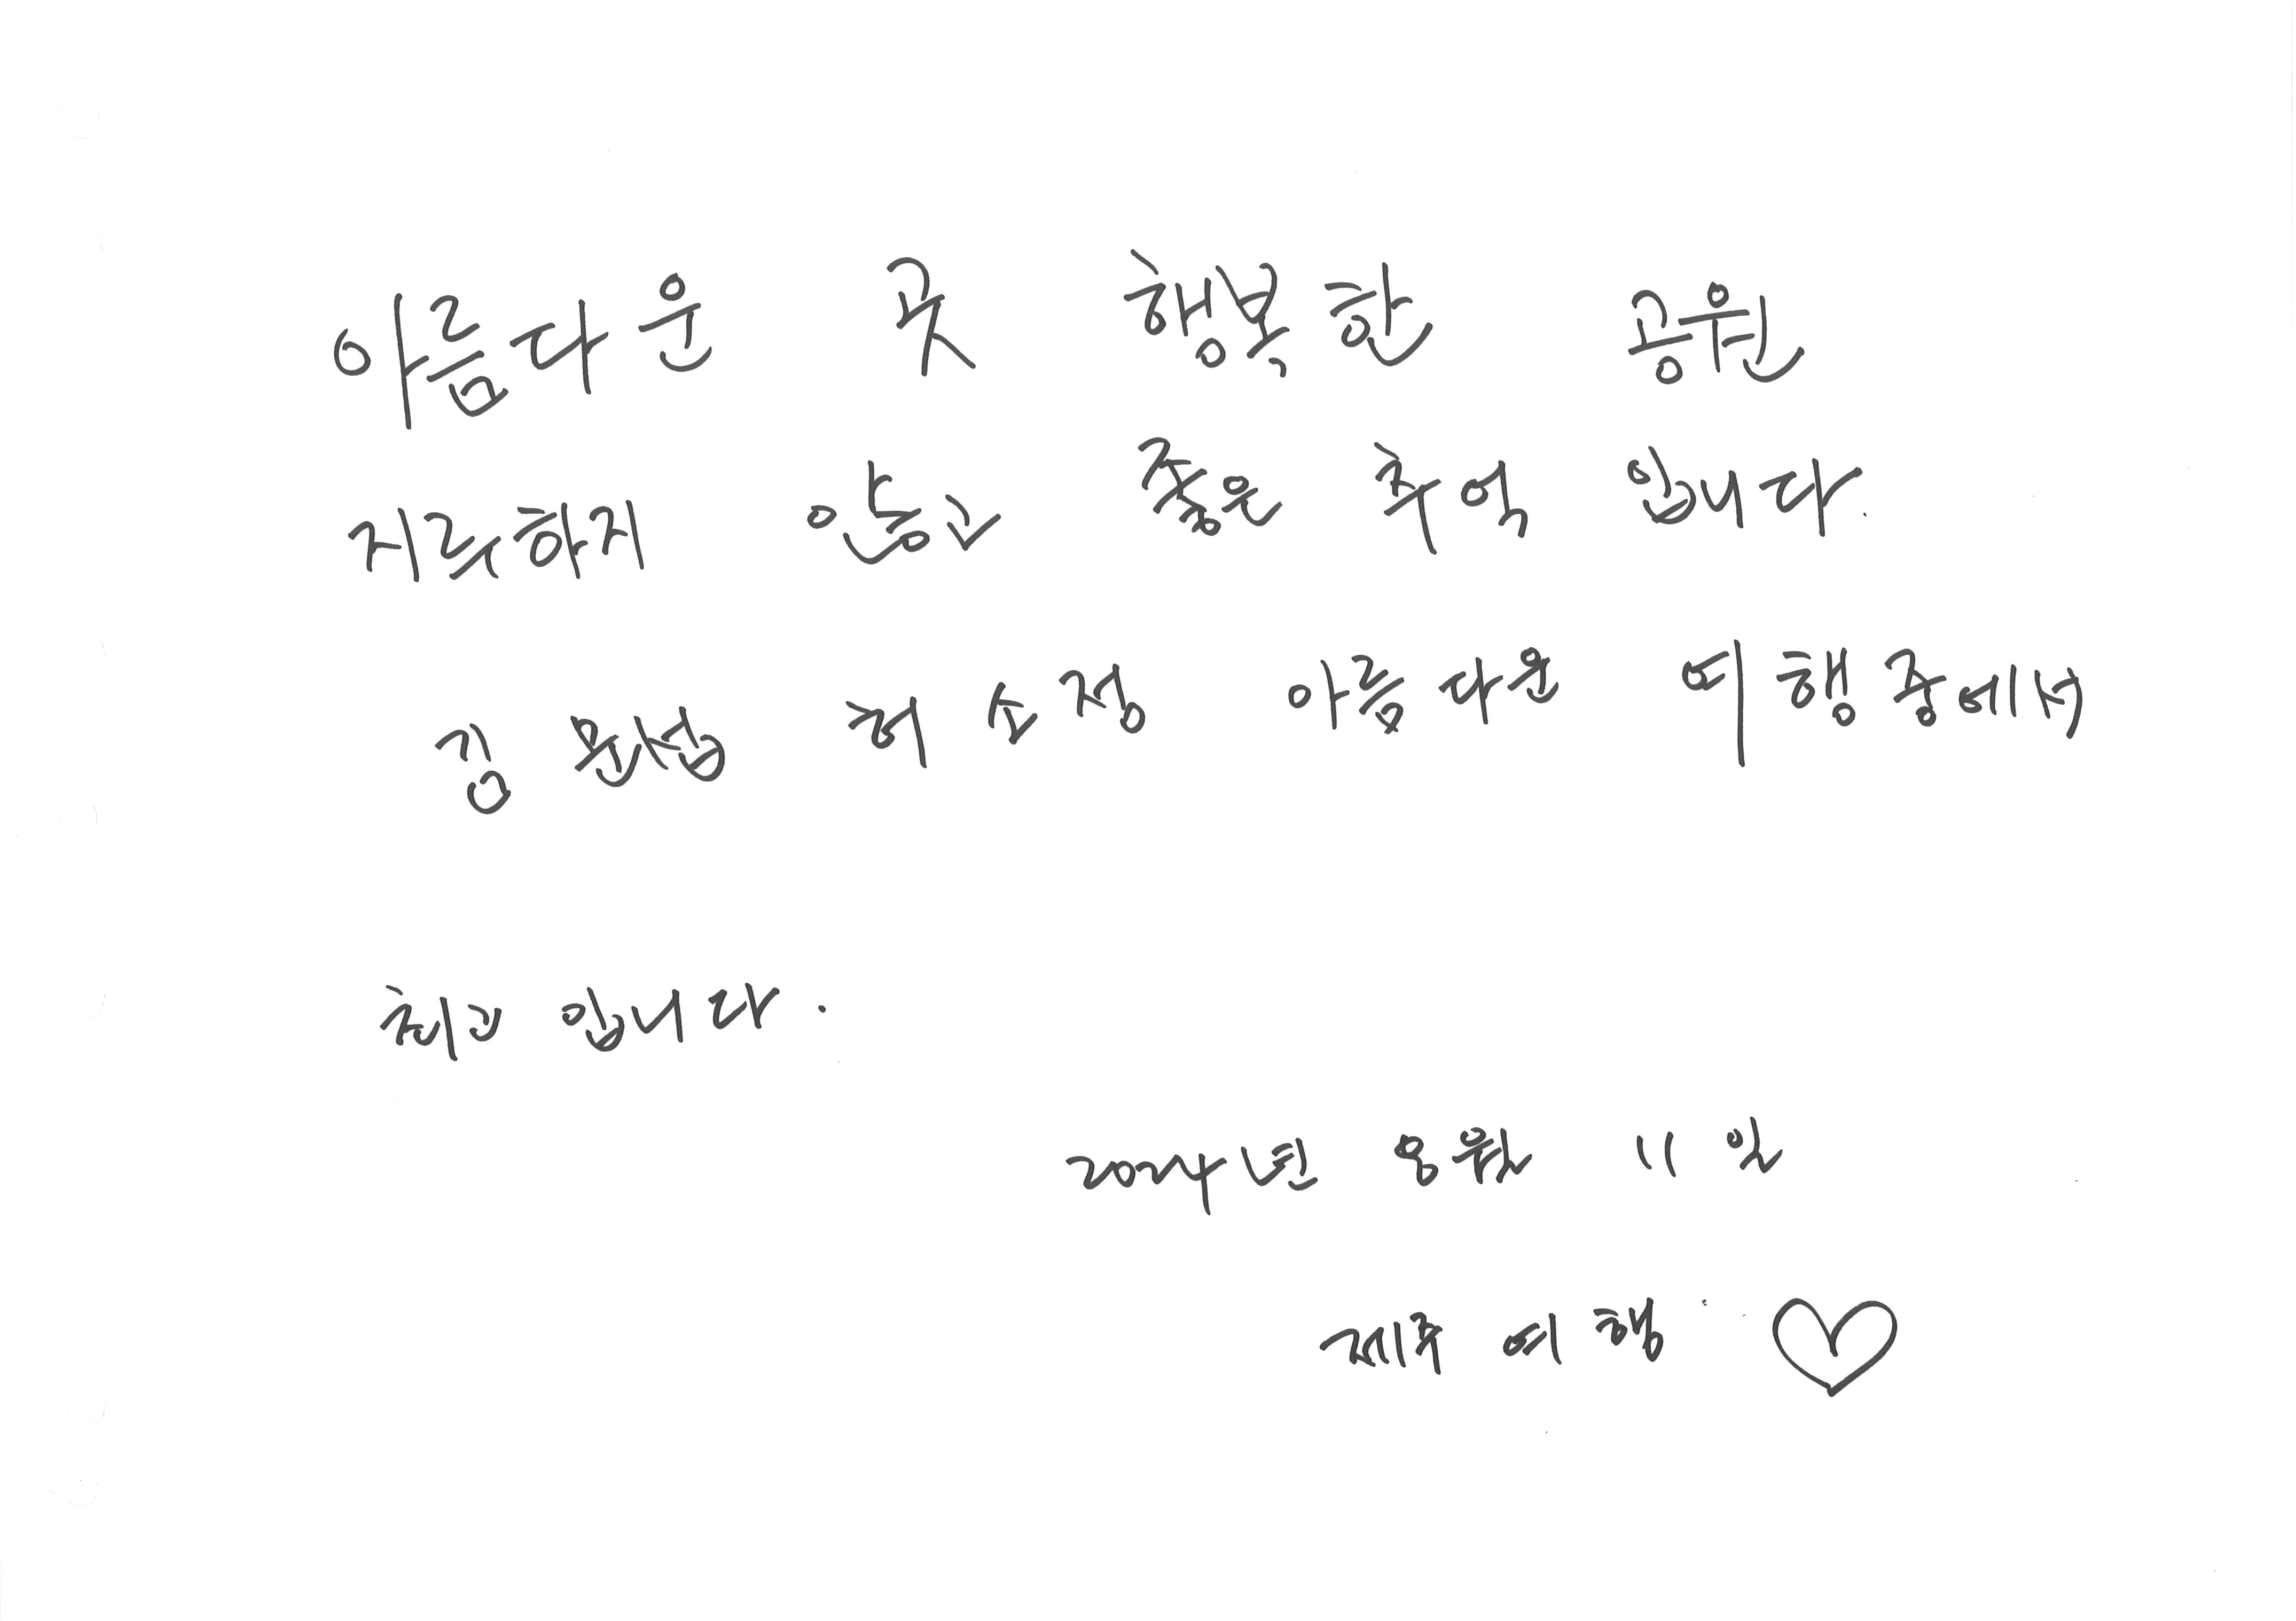 아름다운 곳 행복한 공원
지루하지 않고 좋은 추억 입니다.
김 허 소정 아름다운 여행 중에서
최고 입니다.
2024년 8월 11일
제주 여행 ♡